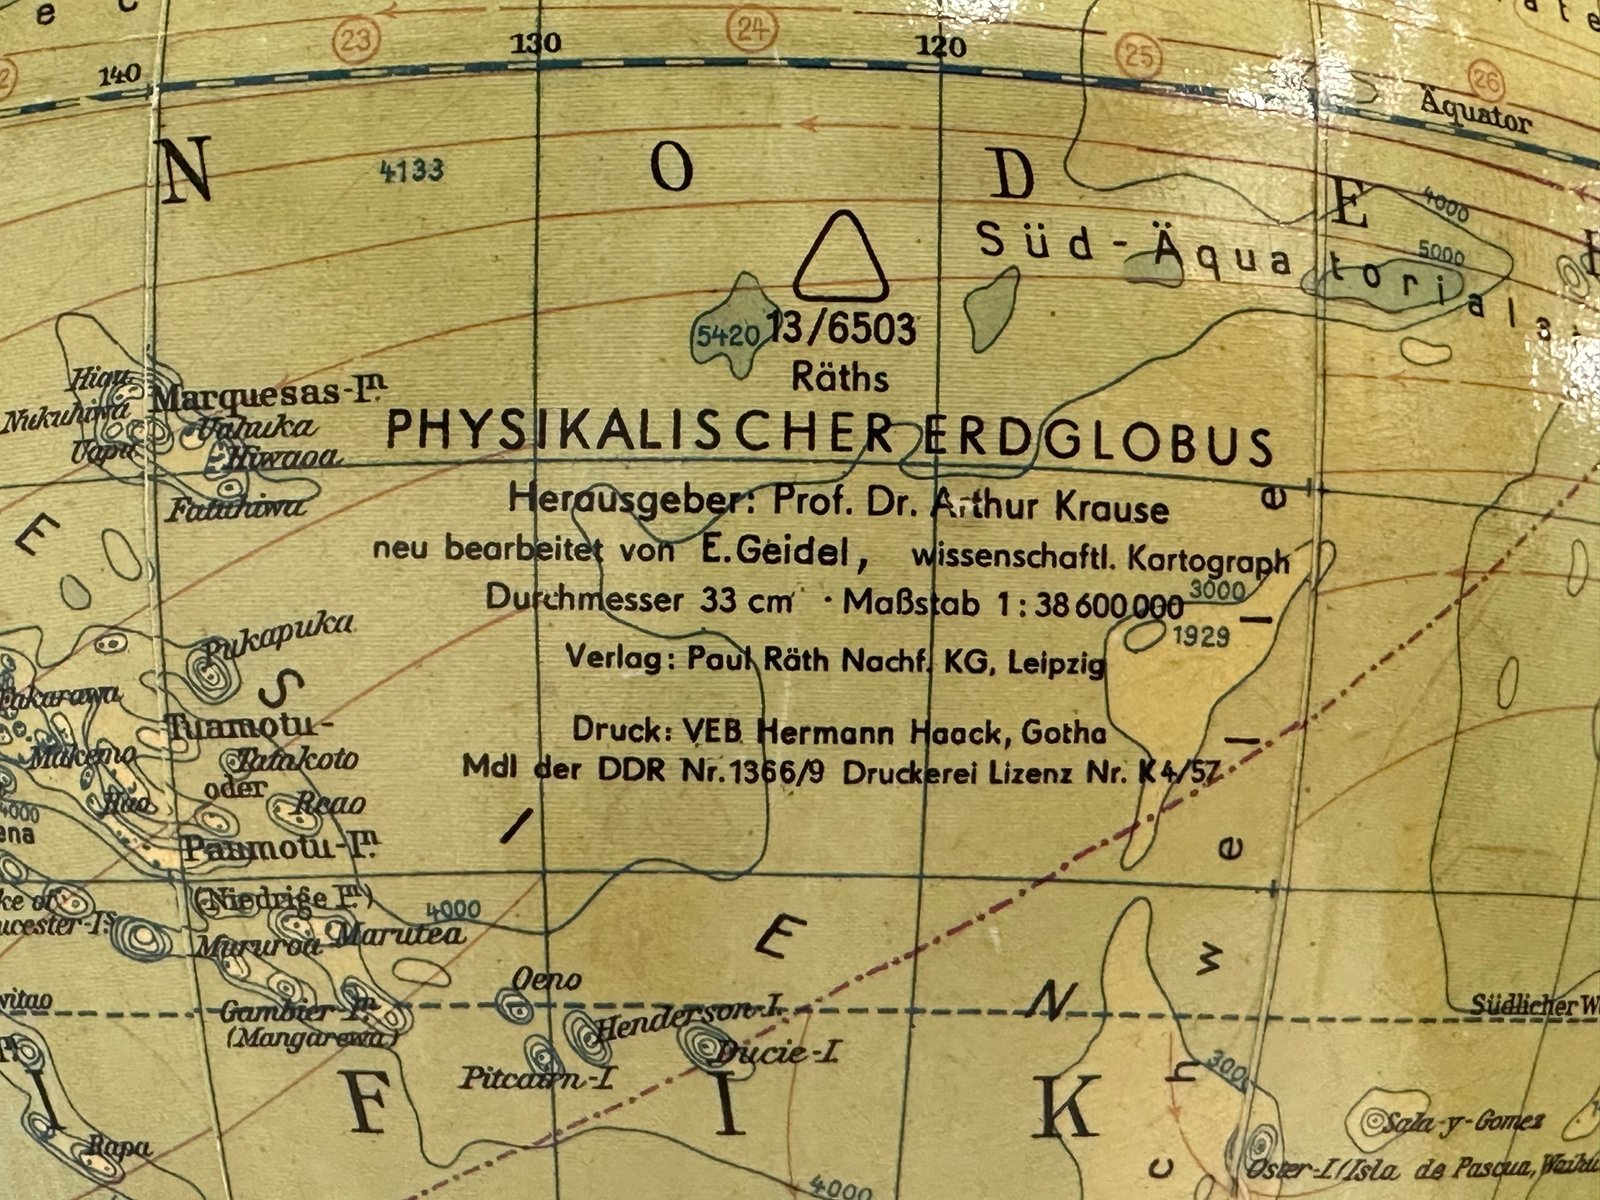 23
24
25
26
140
130
120
Äquator
N O D E
4133
4000
Süd-Äquatorial
5000
5420
13/6503
Räths
PHYSIKALISCHER ERDGLOBUS
Herausgeber: Prof. Dr. Arthur Krause
neu bearbeitet von E. Geidel, wissenschaftl. Kartograph
Durchmesser 33 cm · Maßstab 1:38 600 000
3000
1929
Verlag: Paul Räth Nachf. KG, Leipzig
Druck: VEB Hermann Haack, Gotha
MdI der DDR Nr. 1366/9 Druckerei Lizenz Nr. K 4/57
Marquesas-Iⁿ.
Nukuhiwa
Uahuka
Uapu
Hiwaoa
Fatuhiwa
E
Pukapuka
S
Fakarawa
Tuamotu-
Makemo
Tatakoto
oder
Hao
Reao
4000
Paumotu-Iⁿ.
(Niedrige Iⁿ.)
4000
Mururoa
Marutea
Gambier-Iⁿ.
(Mangarewa)
Oeno
Henderson-I.
Pitcairn-I.
Ducie-I.
I
E
N
Südlicher W
F I K
Rapa
Sala-y-Gomez
Oster-I. (Isla de Pascua,
4000